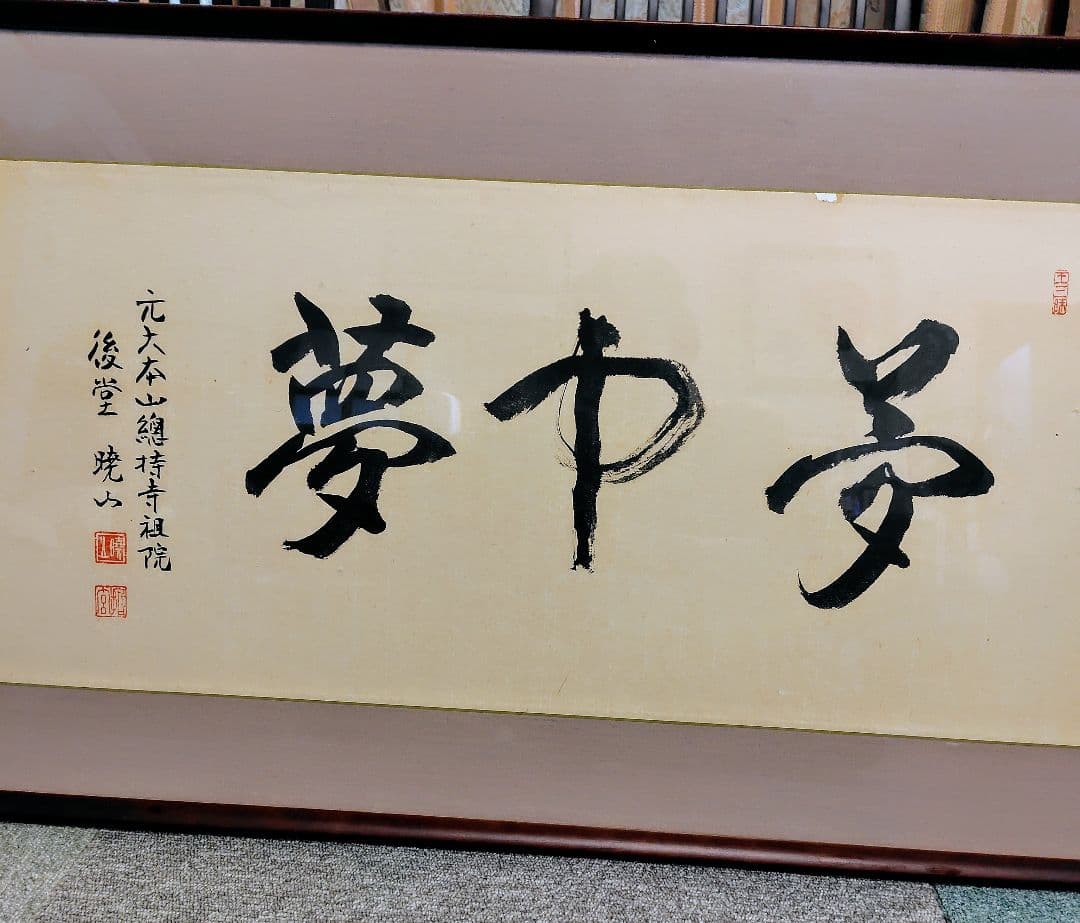 夢中夢
元大本山總持寺祖院
後堂 曉山